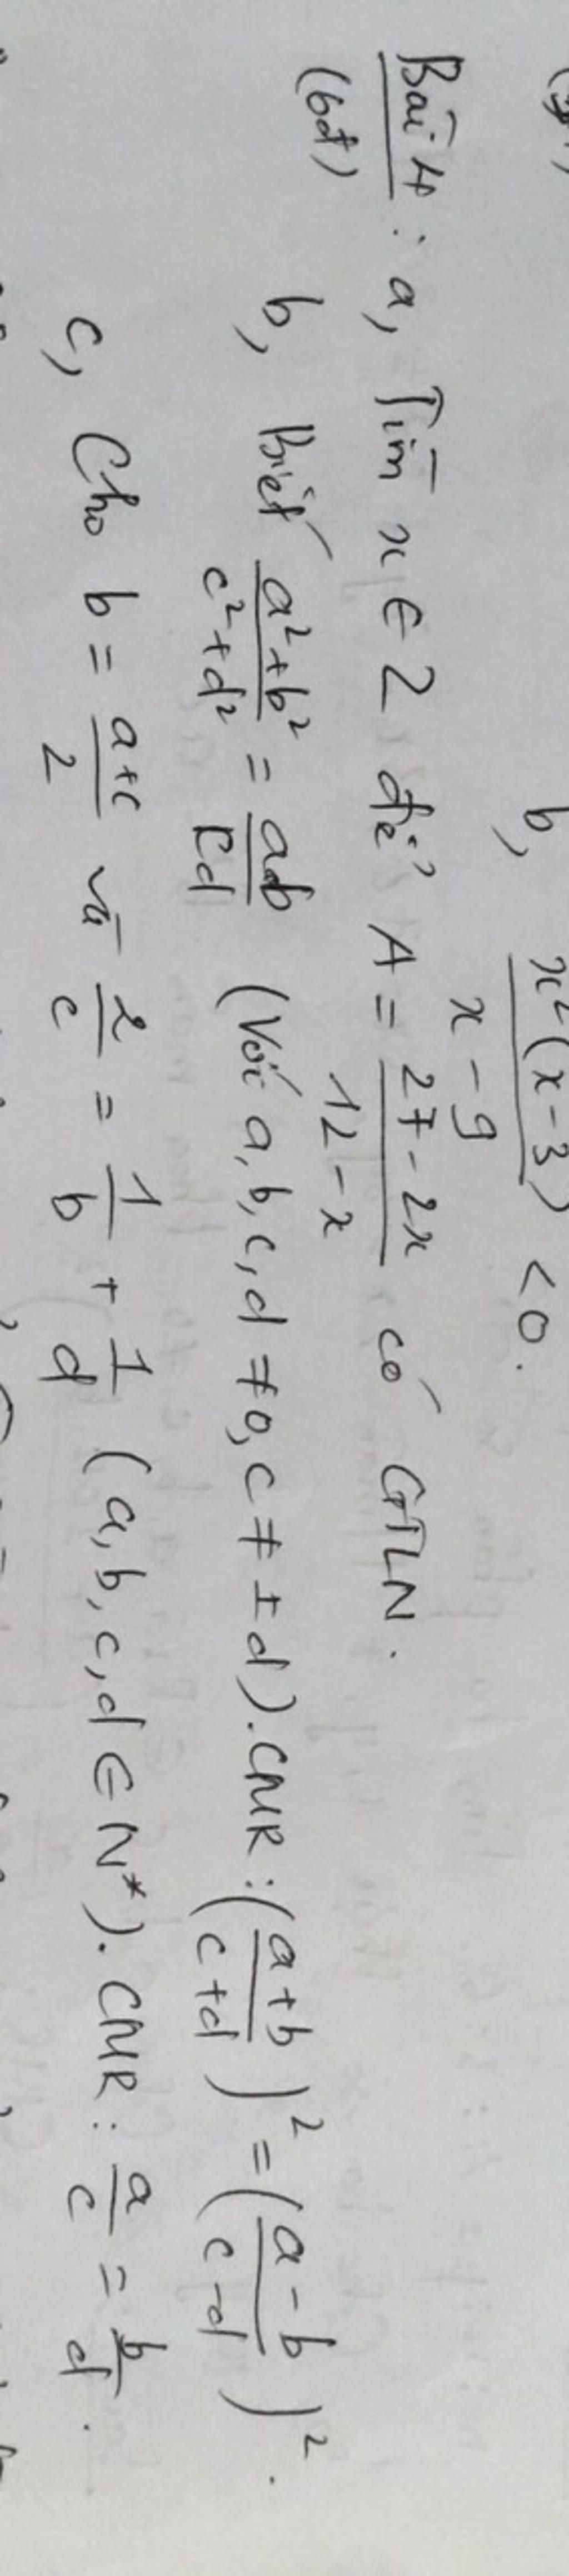 b, x²(x-3) / x-9 < 0.
Bài 4: a, Tìm x ∈ Z để A = 27-2x / 12-x có GTLN.
(6đ)
b, Biết a²+b² / c²+d² = ab / cd (Với a,b,c,d ≠ 0, c ≠ ±d). CMR: (a+b / c+d)² = (a-b / c-d)².
c, Cho b = a+c / 2 và 2/c = 1/b + 1/d (a,b,c,d ∈ N*). CMR: a/c = b/d.